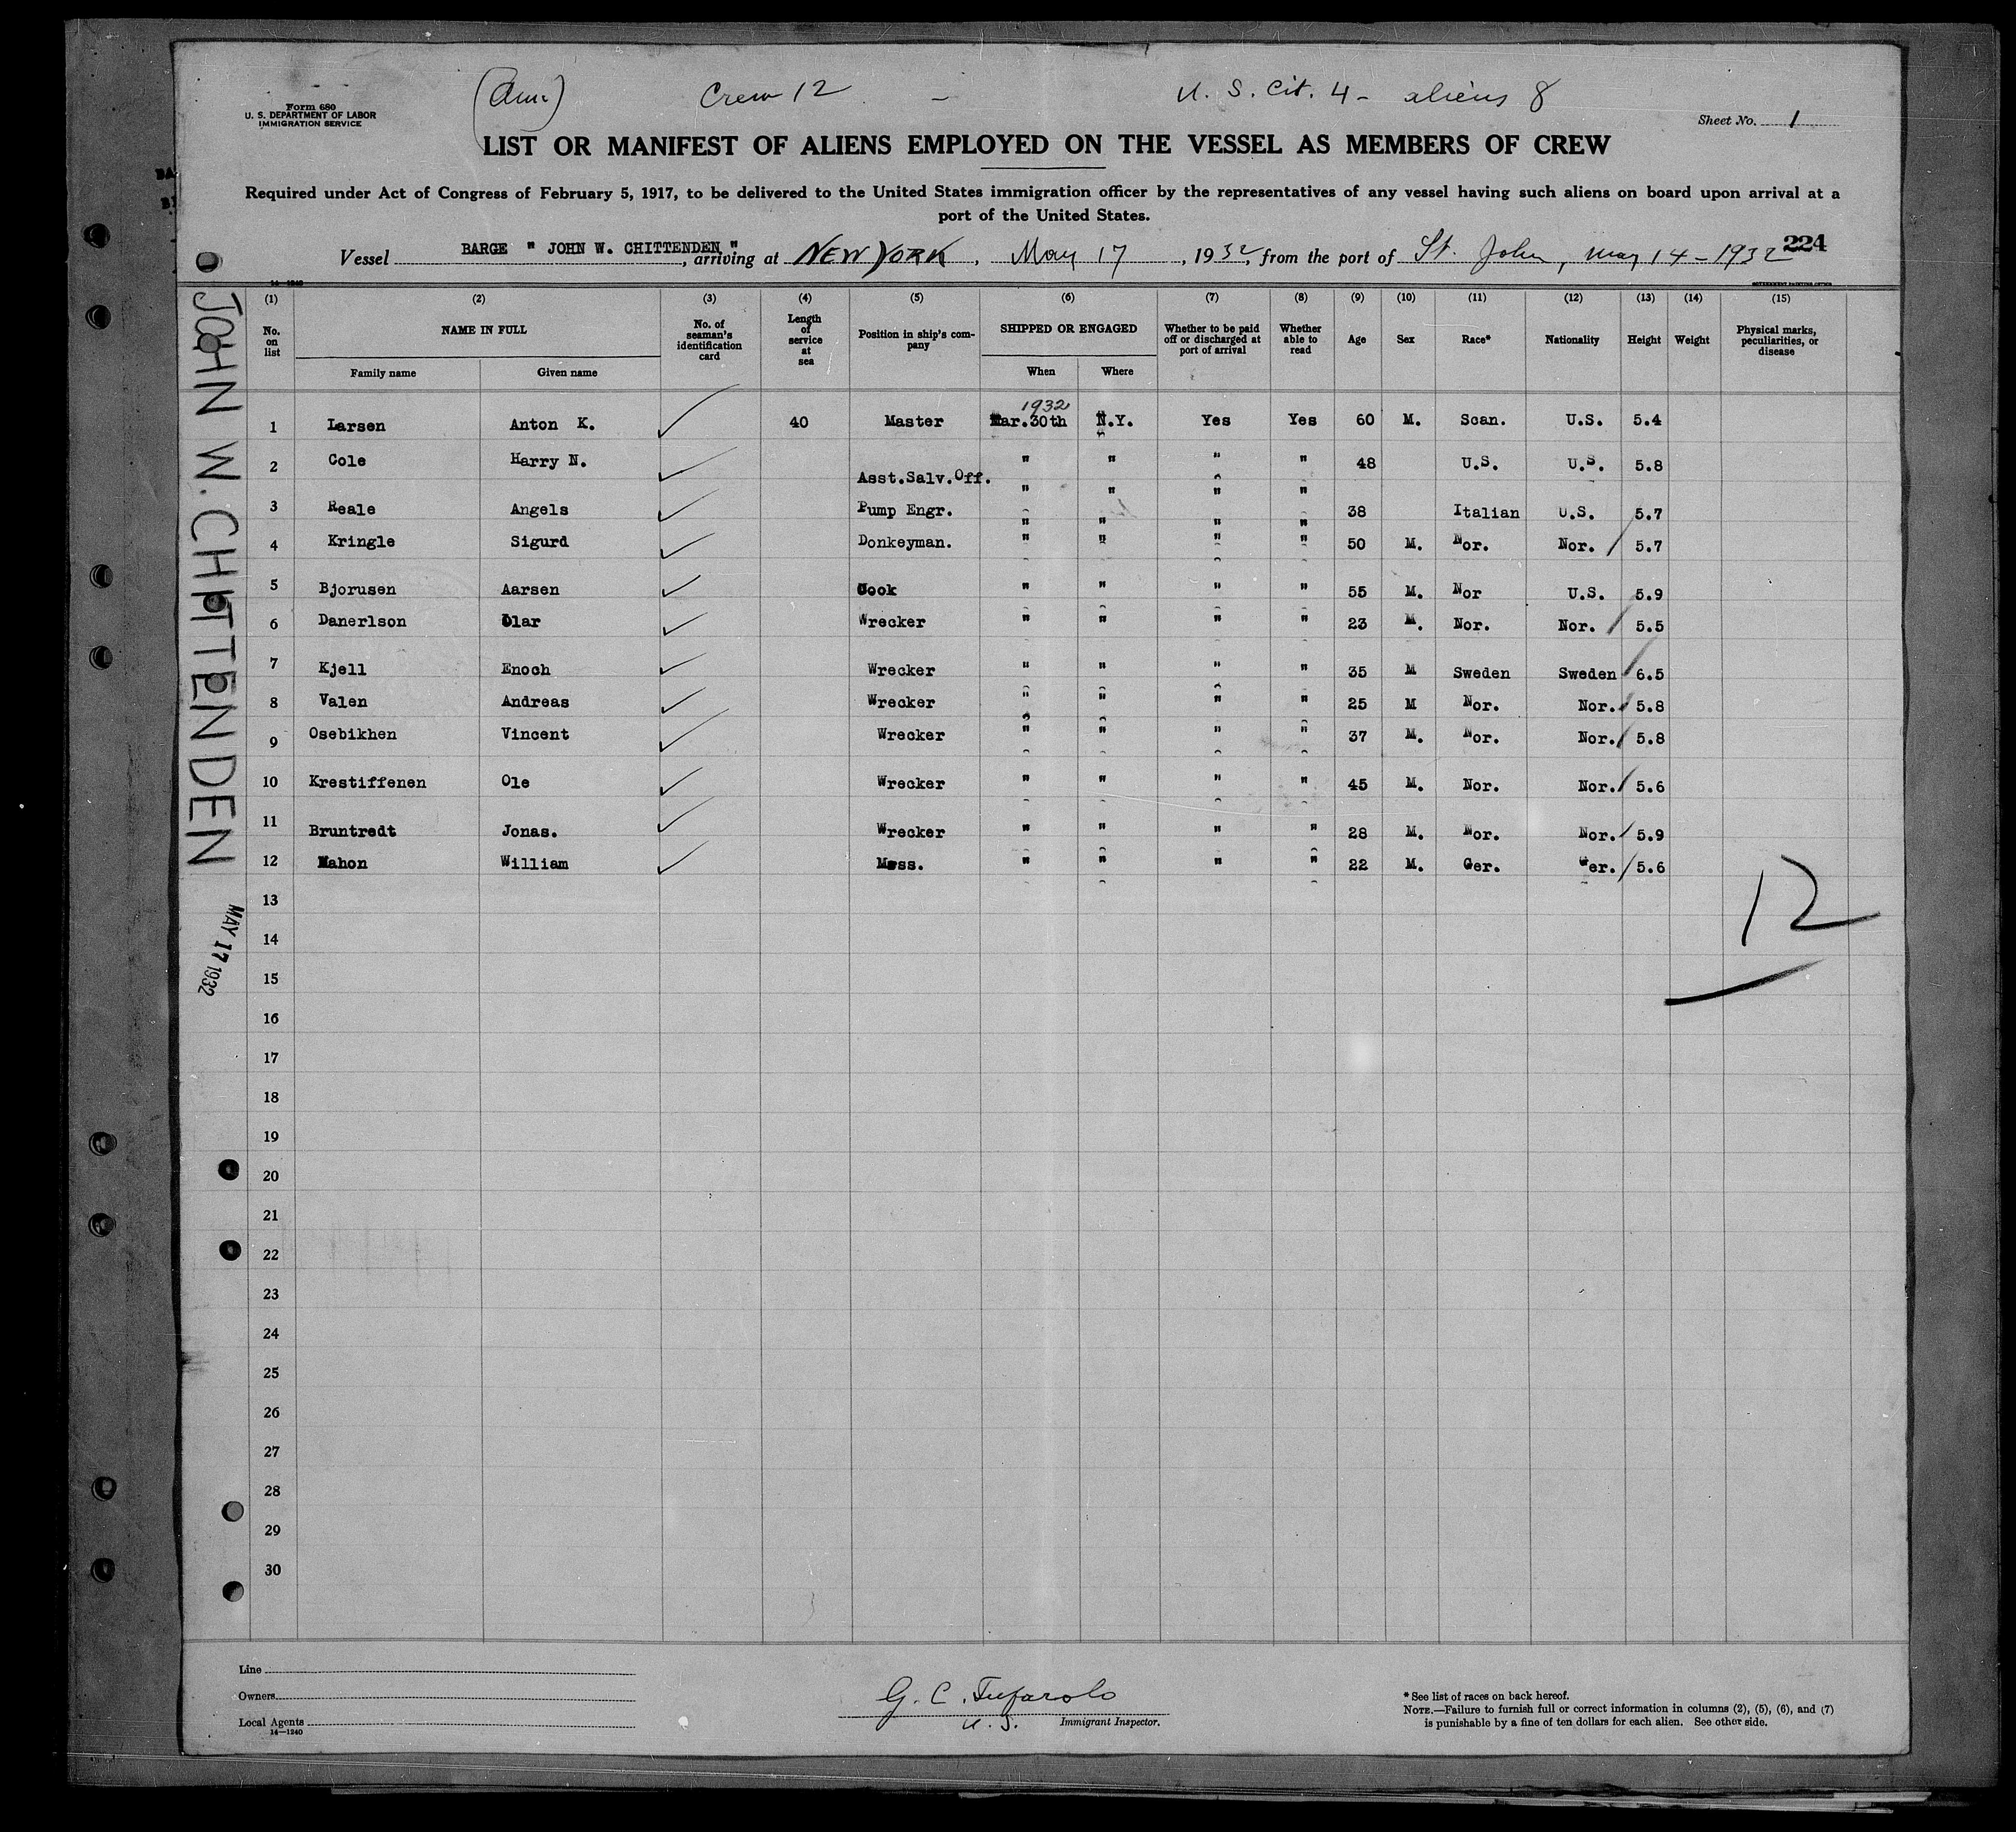 (Am.) Crew 12 - U. S. Cit. 4 - aliens 8
Form 680
U. S. DEPARTMENT OF LABOR
IMMIGRATION SERVICE
Sheet No. 1
LIST OR MANIFEST OF ALIENS EMPLOYED ON THE VESSEL AS MEMBERS OF CREW
Required under Act of Congress of February 5, 1917, to be delivered to the United States immigration officer by the representatives of any vessel having such aliens on board upon arrival at a
port of the United States.
224
Vessel BARGE " JOHN W. CHITTENDEN ", arriving at NEW YORK, May 17, 1932, from the port of St. John, May 14-1932
14-1240
GOVERNMENT PRINTING OFFICE
(1) (2) (3) (4) (5) (6) (7) (8) (9) (10) (11) (12) (13) (14) (15)
No. on list NAME IN FULL No. of seaman's identification card Length of service at sea Position in ship's company SHIPPED OR ENGAGED Whether to be paid off or discharged at port of arrival Whether able to read Age Sex Race* Nationality Height Weight Physical marks, peculiarities, or disease
Family name Given name When Where
1932
1 Larsen Anton K. ✓ 40 Master Mar.30th N.Y. Yes Yes 60 M. Scan. U.S. 5.4
2 Cole Harry N. ✓ Asst.Salv.Off. " " " " 48 U.S. U.S. 5.8
3 Reale Angels ✓ Pump Engr. " " " " 38 Italian U.S. 5.7
4 Kringle Sigurd ✓ Donkeyman. " " " " 50 M. Nor. Nor. / 5.7
5 Bjorusen Aarsen ✓ Cook " " " " 55 M. Nor U.S. 5.9
6 Danerlson Olar ✓ Wrecker " " " " 23 M. Nor. Nor. / 5.5
7 Kjell Enoch ✓ Wrecker " " " " 35 M Sweden Sweden / 6.5
8 Valen Andreas ✓ Wrecker " " " " 25 M Nor. Nor. / 5.8
9 Osebikhen Vincent ✓ Wrecker " " " " 37 M. Nor. Nor. / 5.8
10 Krestiffenen Ole ✓ Wrecker " " " " 45 M. Nor. Nor. / 5.6
11 Bruntredt Jonas. ✓ Wrecker " " " " 28 M. Nor. Nor. / 5.9
12 Mahon William ✓ Mess. " " " " 22 M. Ger. Ger. / 5.6
13
14
15
16
17
18
19
20
21
22
23
24
25
26
27
28
29
30
12
JOHN W. CHITTENDEN
MAY 17 1932
Line
Owners
Local Agents
14-1240
G. C. Tufarolo
U. S. Immigrant Inspector.
* See list of races on back hereof.
NOTE.—Failure to furnish full or correct information in columns (2), (5), (6), and (7)
is punishable by a fine of ten dollars for each alien. See other side.